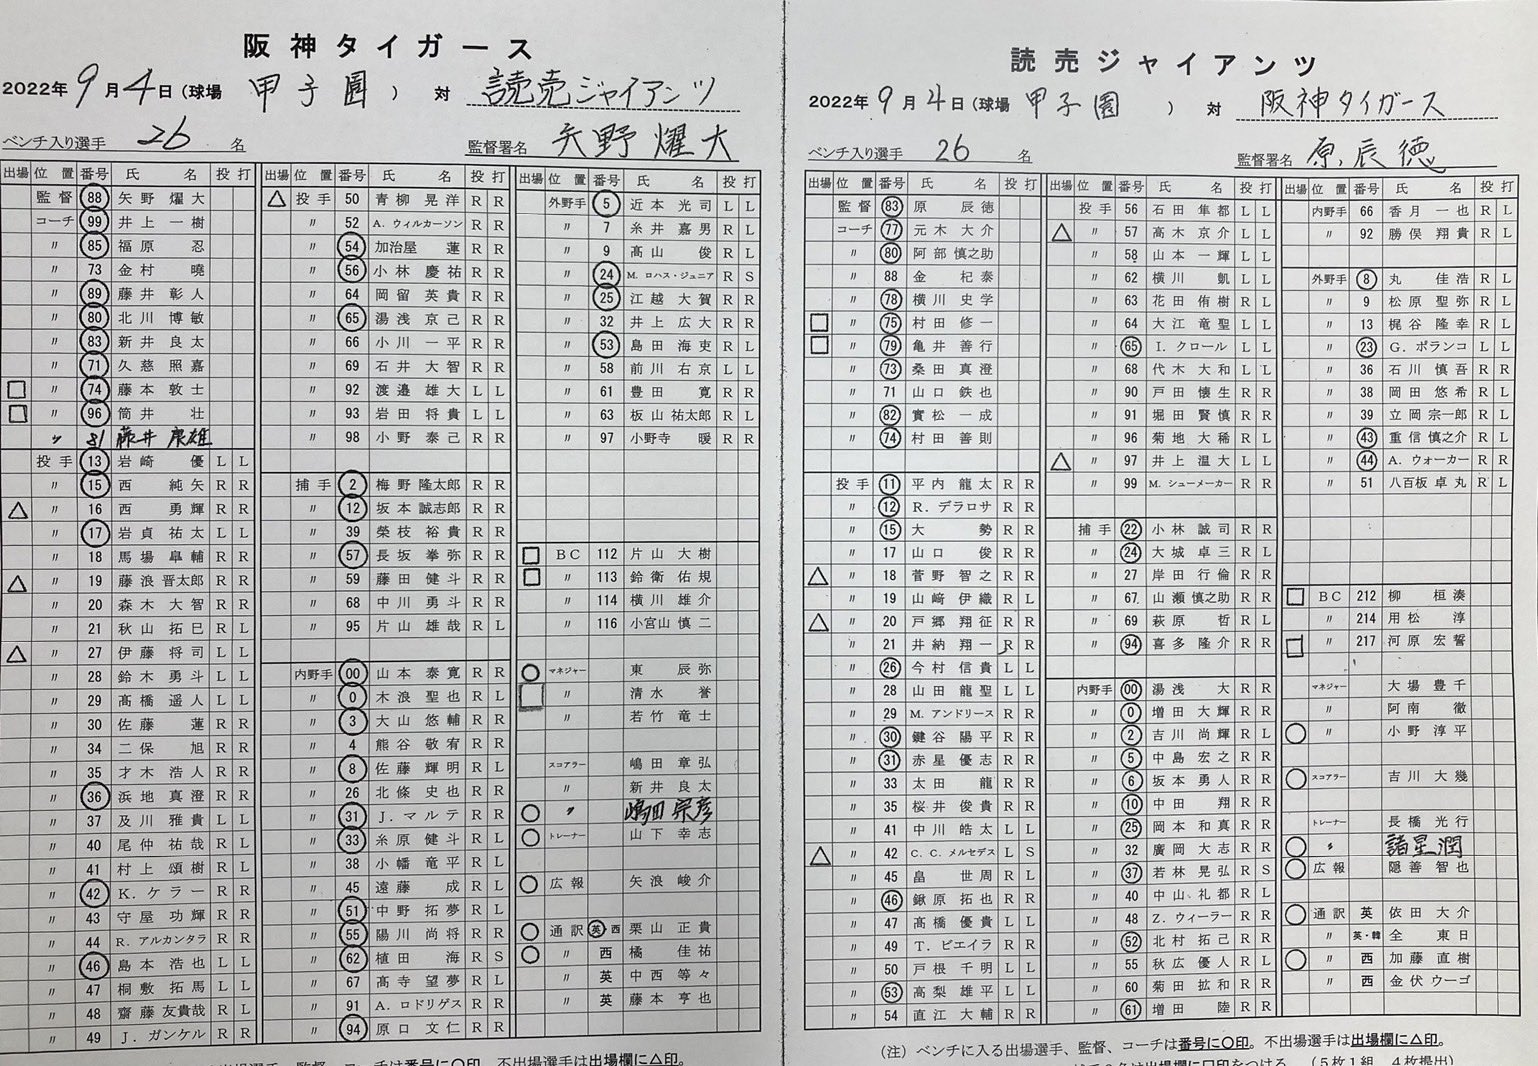 阪神タイガース
2022年 9月 4日 (球場 甲子園 ) 対 読売ジャイアンツ
ベンチ入り選手 26 名 監督署名 矢野燿大
出場 位置 番号 氏名 投 打
監督 88 矢野燿大
コーチ 99 井上一樹
〃 85 福原忍
〃 73 金村曉
〃 89 藤井彰人
〃 80 北川博敏
〃 83 新井良太
〃 71 久慈照嘉
□ 〃 74 藤本敦士
□ 〃 96 筒井壮
〃 81 藤井康雄
投手 13 岩崎優 L L
〃 15 西純矢 R R
△ 〃 16 西勇輝 R R
〃 17 岩貞祐太 L L
〃 18 馬場皐輔 R R
△ 〃 19 藤浪晋太郎 R R
〃 20 森木大智 R R
〃 21 秋山拓巳 R L
△ 〃 27 伊藤将司 L L
〃 28 鈴木勇斗 L L
〃 29 髙橋遥人 L L
〃 30 佐藤蓮 R R
〃 34 二保旭 R R
〃 35 才木浩人 R R
〃 36 浜地真澄 R R
〃 37 及川雅貴 L L
〃 40 尾仲祐哉 R L
〃 41 村上頌樹 R L
〃 42 K. ケラー R R
〃 43 守屋功輝 R R
〃 44 R. アルカンタラ R R
〃 46 島本浩也 L L
〃 47 桐敷拓馬 L L
〃 48 齋藤友貴哉 R L
〃 49 J. ガンケル R R
出場 位置 番号 氏名 投 打
△ 投手 50 青柳晃洋 R R
〃 52 A. ウィルカーソン R R
〃 54 加治屋蓮 R R
〃 56 小林慶祐 R R
〃 64 岡留英貴 R R
〃 65 湯浅京己 R R
〃 66 小川一平 R R
〃 69 石井大智 R R
〃 92 渡邉雄大 L L
〃 93 岩田将貴 L L
〃 98 小野泰己 R R
捕手 2 梅野隆太郎 R R
〃 12 坂本誠志郎 R R
〃 39 榮枝裕貴 R R
〃 57 長坂拳弥 R R
〃 59 藤田健斗 R R
〃 68 中川勇斗 R R
〃 95 片山雄哉 R L
内野手 00 山本泰寛 R R
〃 0 木浪聖也 R L
〃 3 大山悠輔 R R
〃 4 熊谷敬宥 R R
〃 8 佐藤輝明 R L
〃 26 北條史也 R R
〃 31 J. マルテ R R
〃 33 糸原健斗 R L
〃 38 小幡竜平 R L
〃 45 遠藤成 R L
〃 51 中野拓夢 R L
〃 55 陽川尚将 R R
〃 62 植田海 R S
〃 67 髙寺望夢 R L
〃 91 A. ロドリゲス R R
〃 94 原口文仁 R R
出場 位置 番号 氏名 投 打
外野手 5 近本光司 L L
〃 7 糸井嘉男 R L
〃 9 髙山俊 R L
〃 24 M. ロハス・ジュニア R S
〃 25 江越大賀 R R
〃 32 井上広大 R R
〃 53 島田海吏 R L
〃 58 前川右京 L L
〃 61 豊田寛 R R
〃 63 板山祐太郎 R L
〃 97 小野寺暖 R R
□ BC 112 片山大樹
□ 〃 113 鈴衛佑規
〃 114 横川雄介
〃 116 小宮山慎二
○ マネジャー 東辰弥
□ 〃 清水誉
〃 若竹竜士
スコアラー 嶋田章弘
〃 新井良太
○ 〃 嶋田宗彦
○ トレーナー 山下幸志
○ 広報 矢浪峻介
○ 通訳 英・西 栗山正貴
○ 〃 西 橘佳祐
〃 英 中西等々
〃 英 藤本亨也
督、コーチは番号に○印、不出場選手は出場欄に△印。
読売ジャイアンツ
2022年 9月 4日 (球場 甲子園 ) 対 阪神タイガース
ベンチ入り選手 26 名 監督署名 原辰徳
出場 位置 番号 氏名 投 打
監督 83 原辰徳
コーチ 77 元木大介
〃 80 阿部慎之助
〃 88 金杞泰
〃 78 横川史学
□ 〃 75 村田修一
□ 〃 79 亀井善行
〃 73 桑田真澄
〃 71 山口鉄也
〃 82 實松一成
〃 74 村田善則
投手 11 平内龍太 R R
〃 12 R. デラロサ R R
〃 15 大勢 R R
〃 17 山口俊 R R
△ 〃 18 菅野智之 R R
〃 19 山﨑伊織 R L
△ 〃 20 戸郷翔征 R R
〃 21 井納翔一 R R
〃 26 今村信貴 L L
〃 28 山田龍聖 L L
〃 29 M. アンドリース R R
〃 30 鍵谷陽平 R R
〃 31 赤星優志 R R
〃 33 太田龍 R R
〃 35 桜井俊貴 R R
〃 41 中川皓太 L L
△ 〃 42 C. C. メルセデス L S
〃 45 畠世周 R L
〃 46 鍬原拓也 R R
〃 47 髙橋優貴 L L
〃 49 T. ビエイラ R R
〃 50 戸根千明 L L
〃 53 高梨雄平 L L
〃 54 直江大輔 R R
出場 位置 番号 氏名 投 打
投手 56 石田隼都 L L
△ 〃 57 高木京介 L L
〃 58 山本一輝 L L
〃 62 横川凱 L L
〃 63 花田侑樹 R L
〃 64 大江竜聖 L L
〃 65 I. クロール L L
〃 68 代木大和 L L
〃 90 戸田懐生 R R
〃 91 堀田賢慎 R R
〃 96 菊地大稀 R L
△ 〃 97 井上温大 L L
〃 99 M. シューメーカー R R
捕手 22 小林誠司 R R
〃 24 大城卓三 R L
〃 27 岸田行倫 R R
〃 67 山瀬慎之助 R R
〃 69 萩原哲 R L
〃 94 喜多隆介 R R
内野手 00 湯浅大 R R
〃 0 増田大輝 R R
〃 2 吉川尚輝 R L
〃 5 中島宏之 R R
〃 6 坂本勇人 R R
〃 10 中田翔 R R
〃 25 岡本和真 R R
〃 32 廣岡大志 R R
〃 37 若林晃弘 R S
〃 40 中山礼都 R L
〃 48 Z. ウィーラー R R
〃 52 北村拓己 R R
〃 55 秋広優人 R L
〃 60 菊田拡和 R R
〃 61 増田陸 R R
出場 位置 番号 氏名 投 打
内野手 66 香月一也 R L
〃 92 勝俣翔貴 R L
外野手 8 丸佳浩 R L
〃 9 松原聖弥 R L
〃 13 梶谷隆幸 R L
〃 23 G. ポランコ L L
〃 36 石川慎吾 R R
〃 38 岡田悠希 R L
〃 39 立岡宗一郎 R L
〃 43 重信慎之介 R L
〃 44 A. ウォーカー R R
〃 51 八百板卓丸 R L
□ BC 212 柳桓湊
〃 214 用松淳
□ 〃 217 河原宏誓
マネジャー 大場豊千
〃 阿南徹
○ 〃 小野淳平
○ スコアラー 吉川大幾
トレーナー 長橋光行
○ 〃 諸星潤
○ 広報 隠善智也
○ 通訳 英 依田大介
〃 英・韓 全東日
○ 〃 西 加藤直樹
〃 西 金伏ウーゴ
(注) ベンチに入る出場選手、監督、コーチは番号に○印。不出場選手は出場欄に△印。
は出場欄に□印をつける。 (5枚1組 4枚提出)